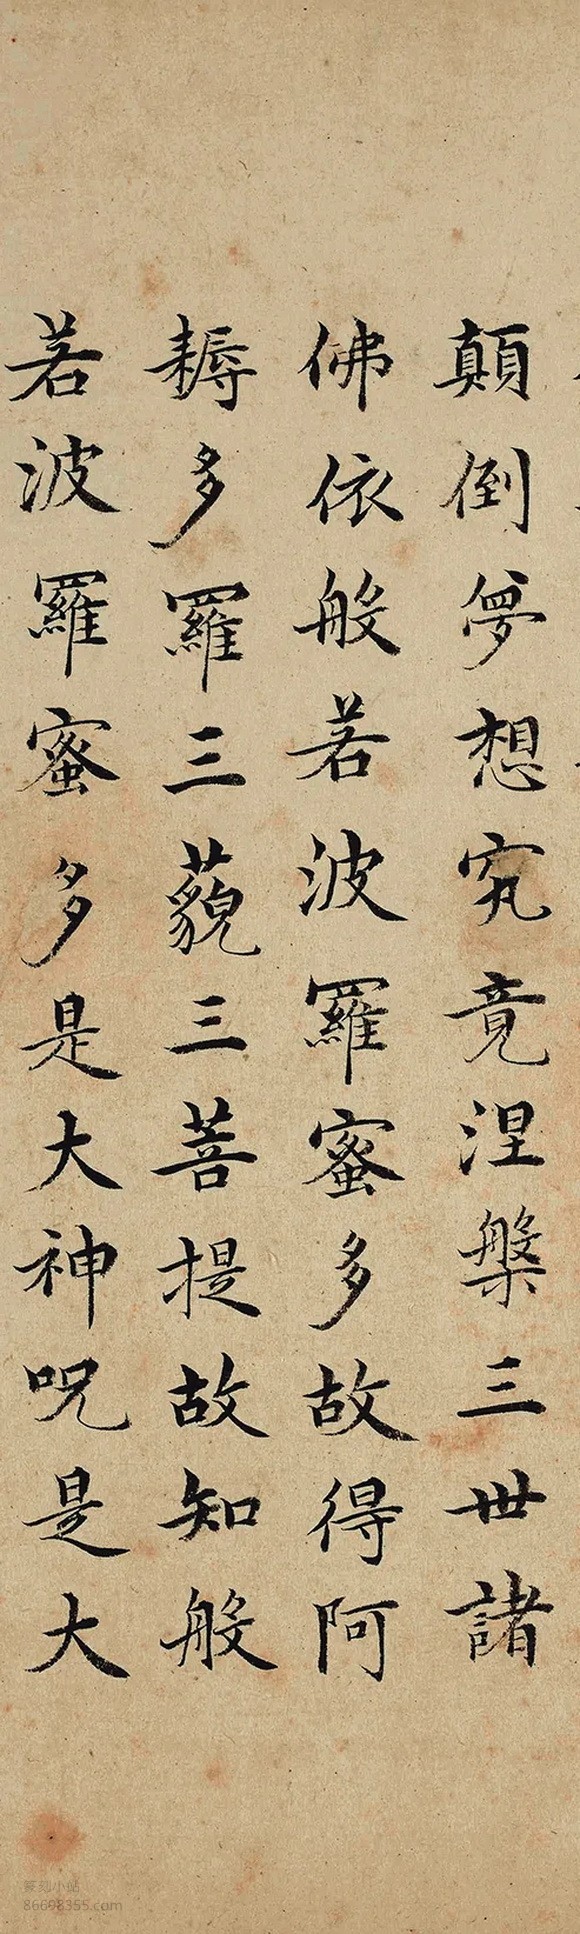 顛倒夢想究竟涅槃三世諸
佛依般若波羅蜜多故得阿
耨多羅三藐三菩提故知般
若波羅蜜多是大神呪是大
篆刻小站
86698355.com